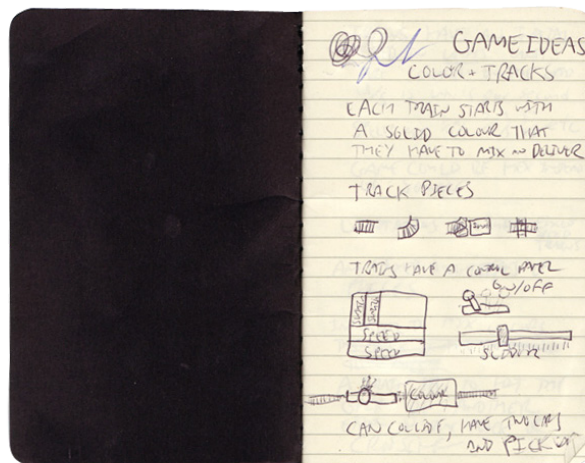 GAME IDEAS
COLOR + TRACKS
EACH TRAIN STARTS WITH
A SOLID COLOUR THAT
THEY HAVE TO MIX DELIVER
TRACK PIECES
TRAINS HAVE A CONTROL PANEL
ON/OFF
SWITCH SWITCH
SPEED
SPEED
SLIDER
COLOUR
CAN COLLIDE, HAVE TWO CARS
AND PICK UPS